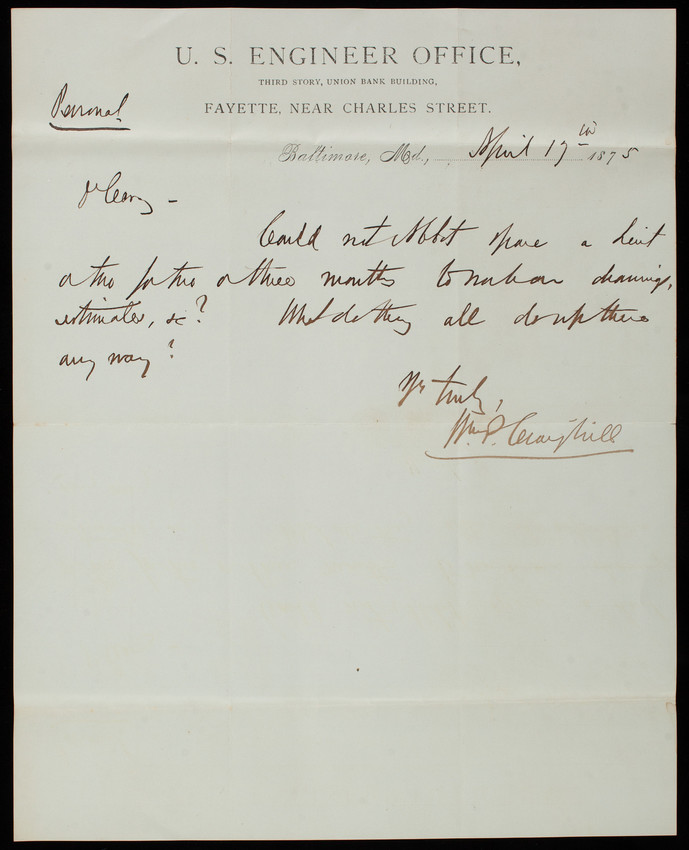 U. S. ENGINEER OFFICE,
THIRD STORY, UNION BANK BUILDING,
Personal
FAYETTE, NEAR CHARLES STREET.
Baltimore, Md., April 17th 1875
Dr Casey —
Could not Abbot spare a Lieut
or two for two or three months to work on drawings,
estimates, &c? What do they all do up there
any way?
Yr truly,
Wm. P. Craighill